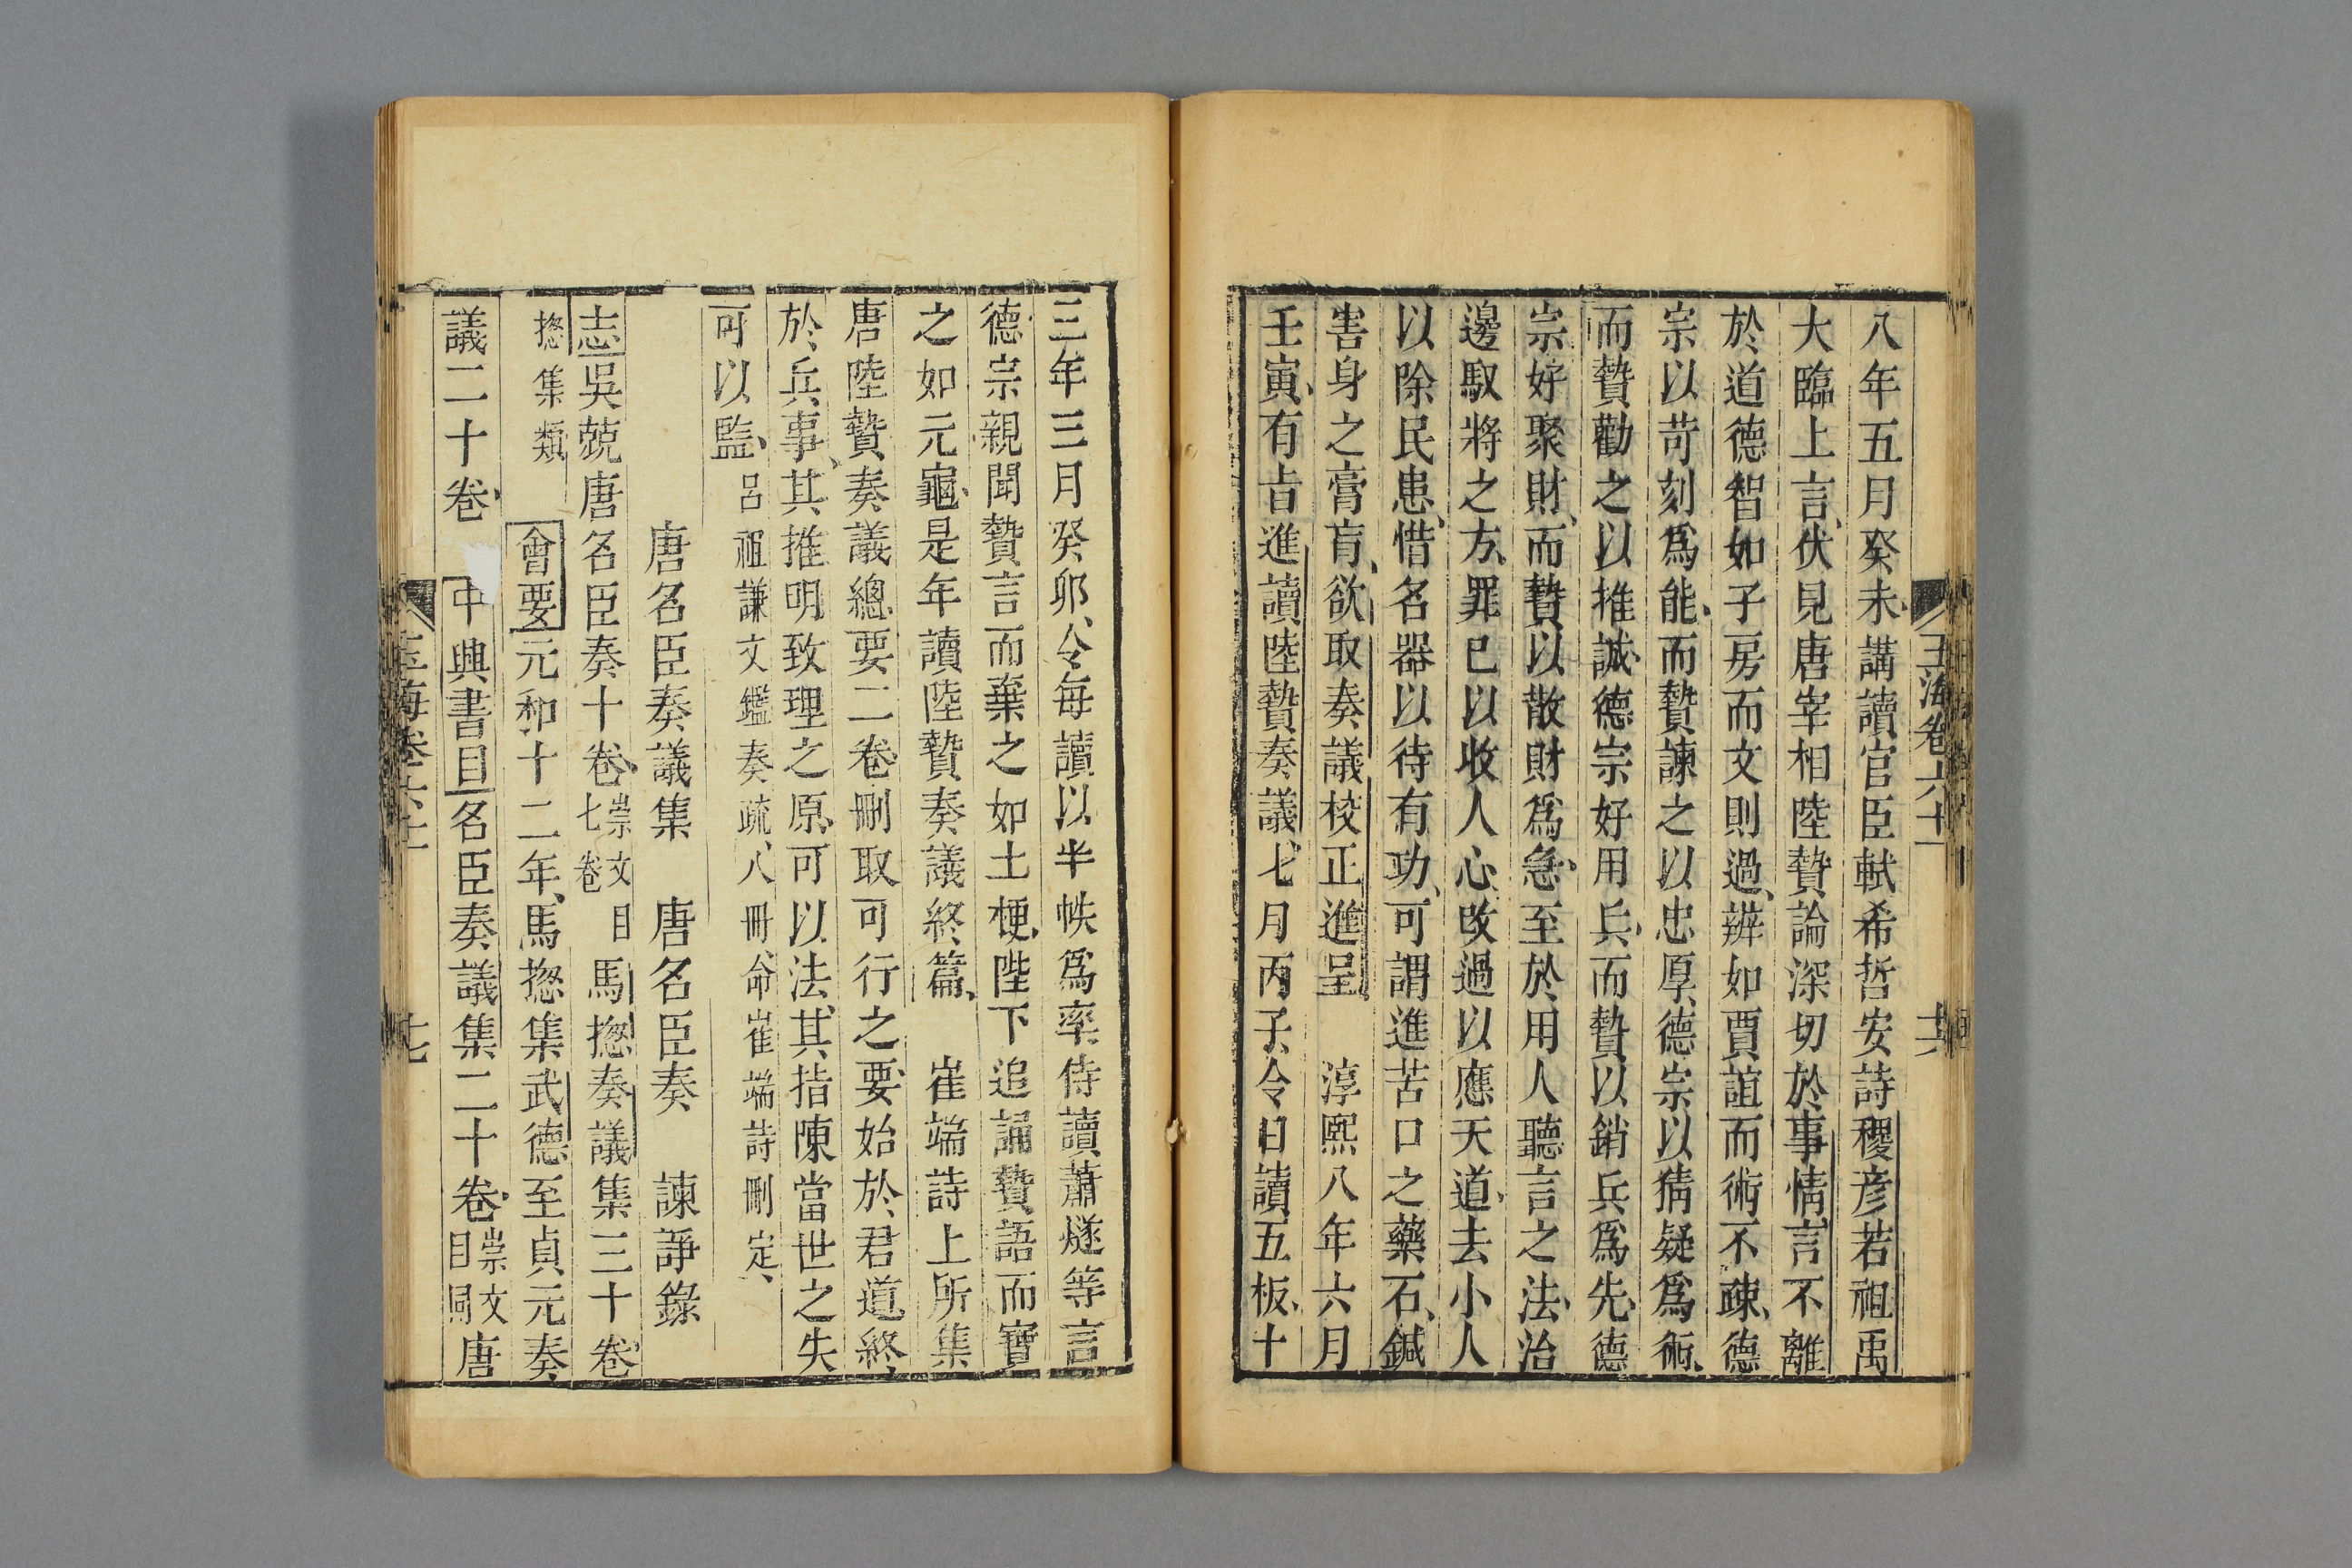 玉海卷六十一
十六
八年五月癸未講讀官臣軾希哲安詩稷彦若祖禹
大臨上言伏見唐宰相陸贄論深切於事情言不離
於道德智如子房而文則過辨如賈誼而術不疎德
宗以苛刻爲能而贄諫之以忠厚德宗以猜疑爲術
而贄勸之以推誠德宗好用兵而贄以銷兵爲先德
宗好聚財而贄以散財爲急至於用人聽言之法治
邊馭將之方罪已以收人心改過以應天道去小人
以除民患惜名器以待有功可謂進苦口之藥石鍼
害身之膏肓欲取奏議校正進呈　淳熙八年六月
壬寅有㫖進讀陸贄奏議七月丙子令日讀五板十
三年三月癸卯令每讀以半帙爲率侍讀蕭燧等言
德宗親聞贄言而棄之如土梗陛下追誦贄語而寶
之如元龜是年讀陸贄奏議終篇　崔端詩上所集
唐陸贄奏議總要二卷刪取可行之要始於君道終
於兵事其推明致理之原可以法其指陳當世之失
可以監呂祖謙文鑑奏疏八冊命崔端詩刪定
唐名臣奏議集　唐名臣奏　諫諍錄
志吳兢唐名臣奏十卷崇文目七卷馬揔奏議集三十卷
揔集類　會要元和十二年馬揔集武德至貞元奏
議二十卷　中興書目名臣奏議集二十卷崇文目同唐
玉海卷六十一
十七